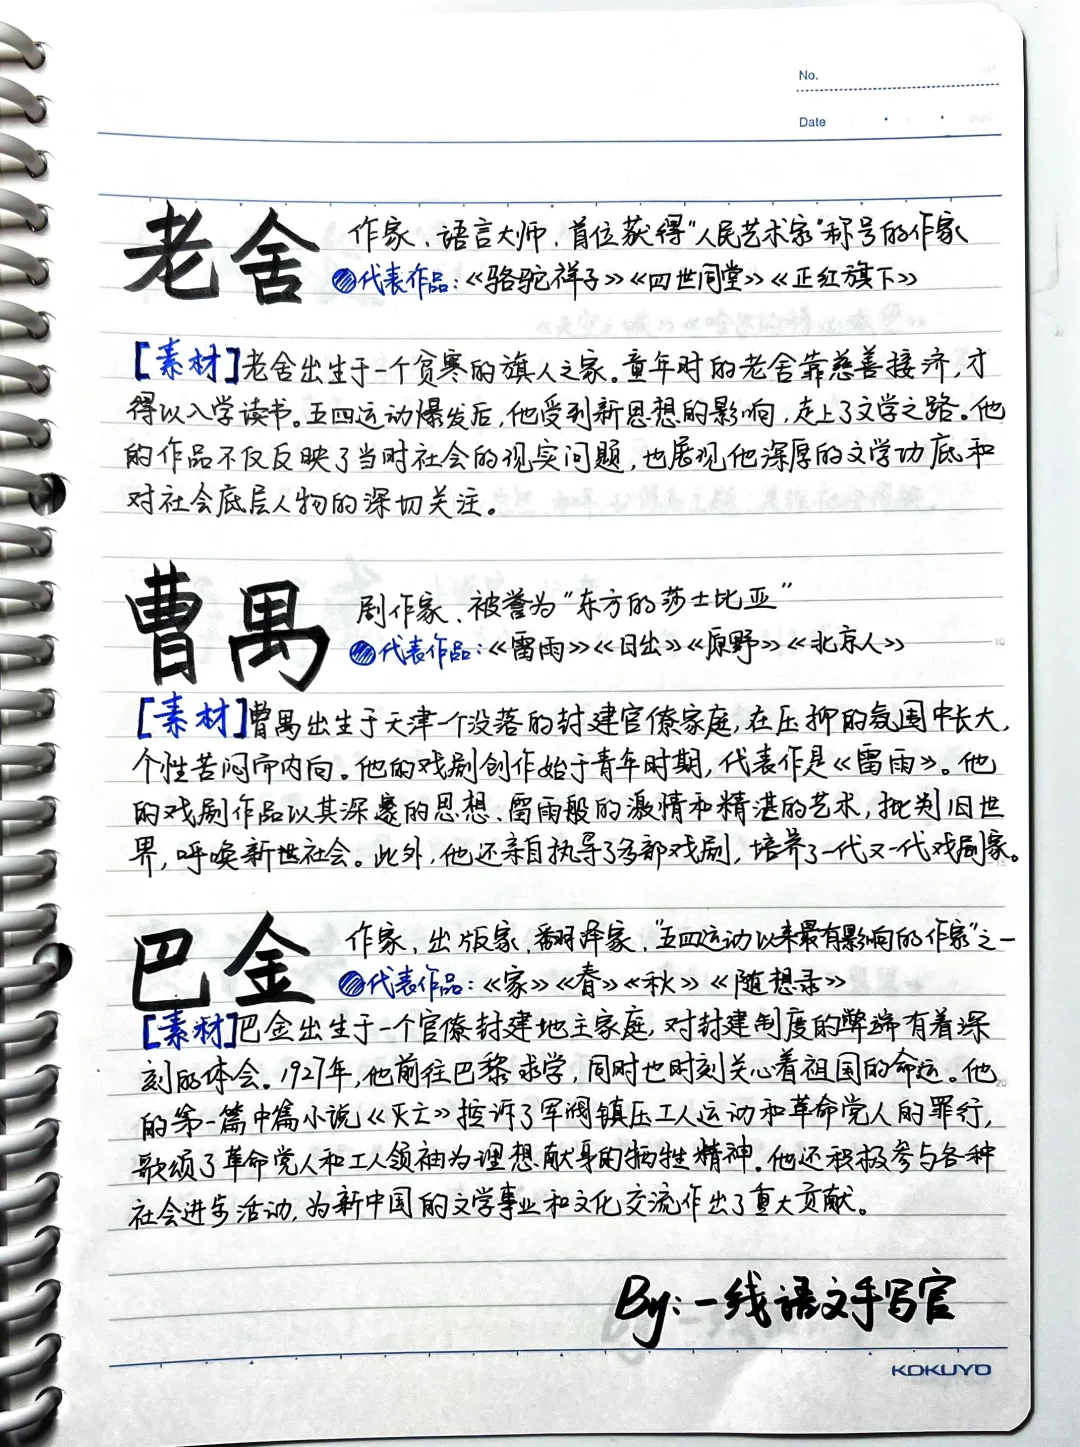 No.
Date
老舍
作家、语言大师、首位获得"人民艺术家"称号的作家
代表作品:《骆驼祥子》《四世同堂》《正红旗下》
【素材】老舍出生于一个贫寒的旗人之家。童年时的老舍靠慈善接济,才
得以入学读书。五四运动爆发后,他受到新思想的影响,走上了文学之路。他
的作品不仅反映了当时社会的现实问题,也展现他深厚的文学功底和
对社会底层人物的深切关注。
曹禺
剧作家、被誉为"东方的莎士比亚"
代表作品:《雷雨》《日出》《原野》《北京人》
【素材】曹禺出生于天津一个没落的封建官僚家庭,在压抑的氛围中长大,
个性苦闷而内向。他的戏剧创作始于青年时期,代表作是《雷雨》。他
的戏剧作品以其深邃的思想、雷雨般的激情和精湛的艺术,批判旧世
界,呼唤新世社会。此外,他还亲自执导了多部戏剧,培养了一代又一代戏剧家。
10
15
巴金
作家、出版家、翻译家、"五四运动以来最有影响的作家"之一
代表作品:《家》《春》《秋》《随想录》
【素材】巴金出生于一个官僚封建地主家庭,对封建制度的弊端有着深
刻的体会。1927年,他前往巴黎求学,同时也时刻关心着祖国的命运。他
20
的第一篇中篇小说《灭亡》控诉了军阀镇压工人运动和革命党人的罪行,
歌颂了革命党人和工人领袖为理想献身的牺牲精神。他还积极参与各种
社会进步活动,为新中国的文学事业和文化交流作出了重大贡献。
By:一线语文手写官
KOKUYO